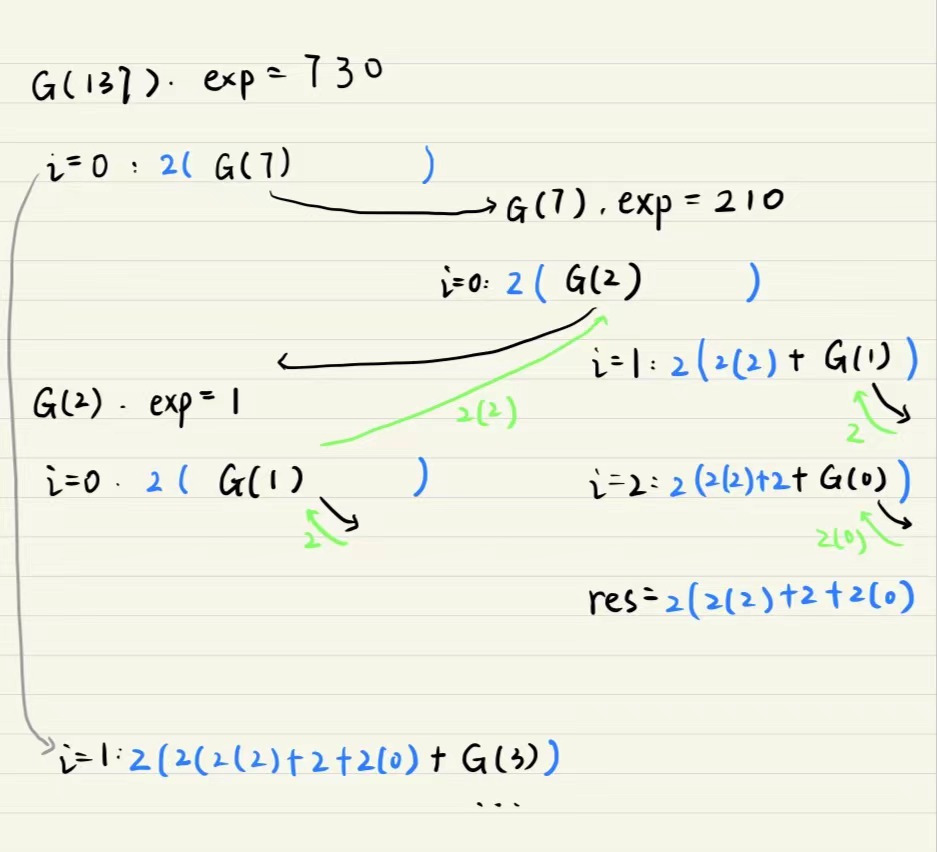 G(137). exp = 730
i=0 : 2( G(7) )
G(7). exp = 210
i=0: 2( G(2) )
i=1: 2(2(2) + G(1))
2
G(2). exp = 1
2(2)
i=0. 2( G(1) )
2
i=2: 2(2(2)+2+ G(0))
2(0)
res=2(2(2)+2+2(0)
i=1:2(2(2(2)+2+2(0) + G(3))
...